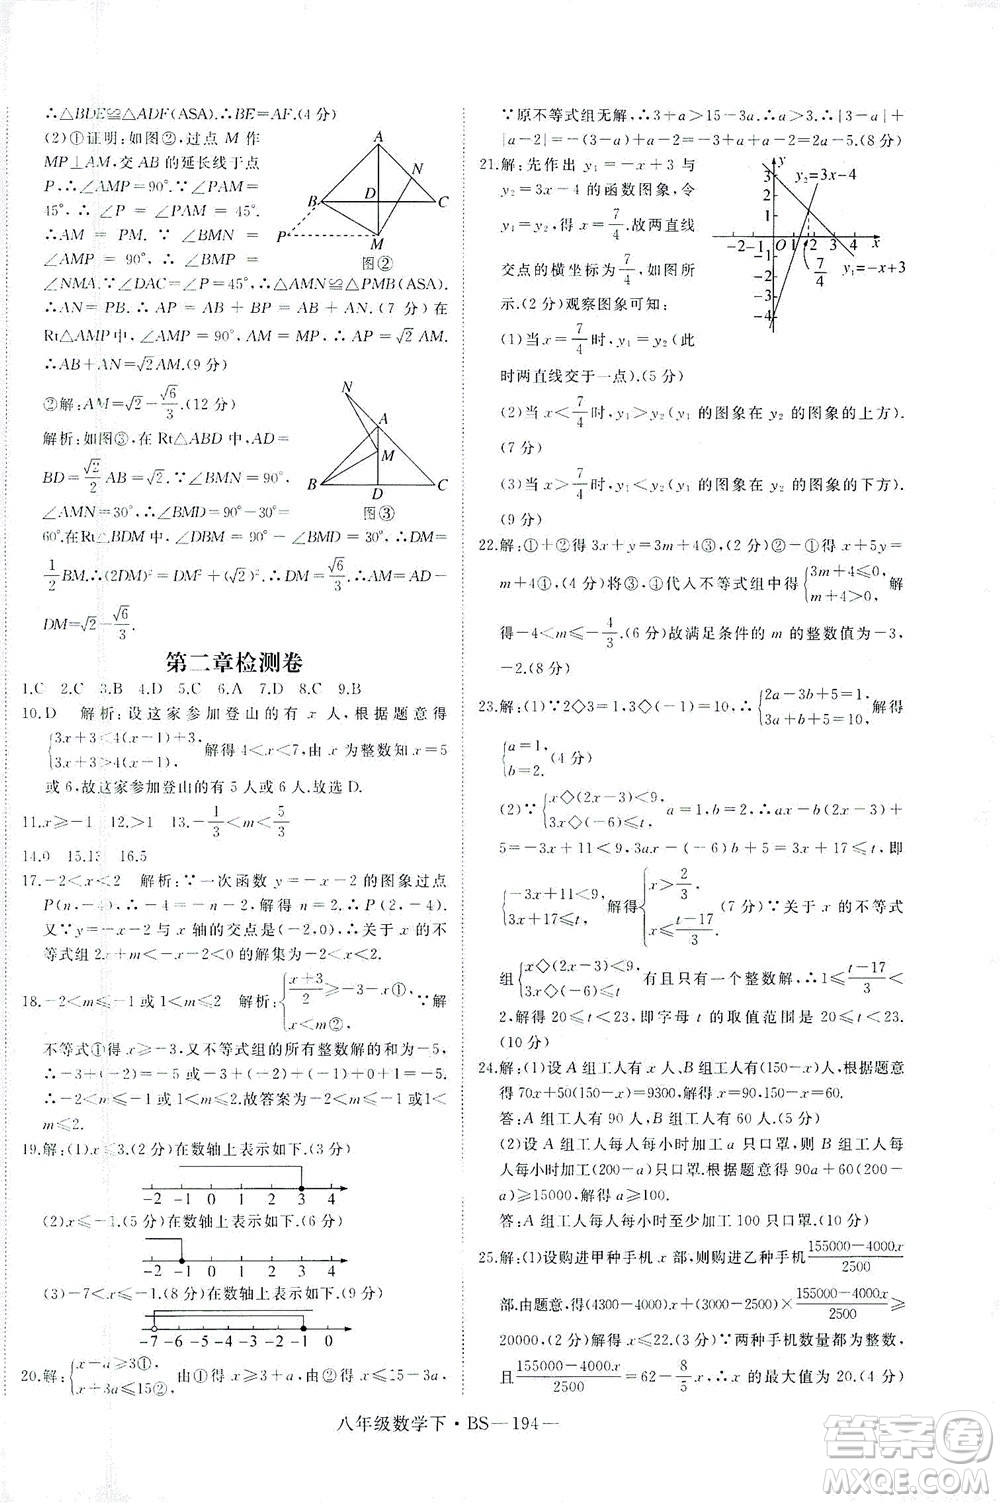 ∴△BDE≌△ADF(ASA).∴BE=AF.(4 分)
(2)①证明:如图②,过点 M 作
MP⊥AM,交 AB 的延长线于点
P,∴∠AMP=90°.∵∠PAM=
45°,∴∠P=∠PAM=45°.
∴AM=PM.∵∠BMN=
∠AMP=90°,∴∠BMP=
∠NMA.∵∠DAC=∠P=45°,∴△AMN≌△PMB(ASA).
∴AN=PB.∴AP=AB+BP=AB+AN.(7 分)在
Rt△AMP 中,∠AMP=90°,AM=MP,∴AP=√2AM.
∴AB+AN=√2AM.(9 分)
A
N
D
B
C
P
M
图②
②解:AM=√2-√6/3.(12 分)
解析:如图③,在 Rt△ABD 中,AD=
BD=√2/2 AB=√2.∵∠BMN=90°,
∠AMN=30°,∴∠BMD=90°-30°=
60°.在Rt△BDM 中,∠DBM=30°,∴DM=
1/2 BM.∴(2DM)²=DM²+(√2)².∴DM=√6/3.∴AM=AD-
DM=√2-√6/3.
N
A
M
B
D
C
图③
第二章检测卷
1.C 2.C 3.B 4.D 5.C 6.A 7.D 8.C 9.B
10.D 解析:设这家参加登山的有 x 人,根据题意得
{3x+3<4(x-1)+3, 3x+3>4(x-1)-3, 解得 4<x<10,由 x 为整数知 x=5
或 6,故这家参加登山的有 5 人或 6 人.故选 D.
11.x≥-1 12.>1 13.-1/3<m<5/3
14.0 15.13 16.5
17.-2<x<2 解析:∵一次函数 y=-x-2 的图象过点
P(n,-4),∴-4=-n-2,解得 n=2,∴P(2,-4).
又∵y=-x-2 与 x 轴的交点是(-2,0),∴关于 x 的不
等式组 2x+m<-x-2<0 的解集为-2<x<2.
18.-2<m≤-1 或 1<m≤2 解析:{(x+3)/2≥-x①, x<m②, ∵解
不等式①得 x≥-3,又不等式组的所有整数解的和为-5,
∴-3+(-2)=-5 或-3+(-2)+(-1)+0+1=-5.
∴-2<m≤-1 或 1<m≤2.故答案为-2<m≤-1 或 1<m
≤2.
19.解:(1)x≤3.(2 分)在数轴上表示如下.(3 分)
-2 -1 0 1 2 3 4
(2)x≤-1.(5 分)在数轴上表示如下.(6 分)
-2 -1 0 1 2 3 4
(3)-7<x≤-1.(8 分)在数轴上表示如下.(9 分)
-7 -6 -5 -4 -3 -2 -1 0
20.解:{x-a≥3①, x+a≤15②, 由①得 x≥3+a,由②得 x≤15-3a,
∵原不等式组无解,∴3+a>15-3a.∴a>3.∴|3-a|+
|a-2|=-(3-a)+a-2=-3+a+a-2=2a-5.(8 分)
21.解:先作出 y₁=-x+3 与
y₂=3x-4 的函数图象,令
y₁=y₂,得 x=7/4.故两直线
交点的横坐标为7/4,如图所
示.(2 分)观察图象可知:
(1)当 x=7/4时,y₁=y₂(此
时两直线交于一点).(5 分)
y
y₂=3x-4
3
2
1
-2 -1 O 1 2 3 4 x
-1
-2
-3
-4
7/4
y₁=-x+3
(2)当 x<7/4时,y₁>y₂(y₁ 的图象在 y₂ 的图象的上方).
(7 分)
(3)当 x>7/4时,y₁<y₂(y₁ 的图象在 y₂ 的图象的下方).
(9 分)
22.解:①+②得 3x+y=3m+4③,②-①得 x+5y=
m+4④,(4 分)将③,④代入不等式组中得{3m+4≤0, m+4>0, 解
得-4<m≤-4/3.(6 分)故满足条件的 m 的整数值为-3,
-2.(8 分)
23.解:(1)∵2◇3=1,3◇(-1)=10,∴{2a-3b+5=1, 3a+b+5=10, 解得
{a=1, b=2.(4 分)
(2)∵{x◇(2x-3)<9, 3x◇(-6)≤t, a=1,b=2,∴x-2(2x-3)+
5=-3x+11<9,3x-2×(-6)+5=3x+17≤t,即
{-3x+11<9, 3x+17≤t, 解得{x>2/3, x≤(t-17)/3.(7 分)∵关于 x 的不等式
组{x◇(2x-3)<9, 3x◇(-6)≤t 有且只有一个整数解,∴1≤(t-17)/3<
2,解得 20≤t<23,即字母 t 的取值范围是 20≤t<23.
(10 分)
24.解:(1)设 A 组工人有 x 人,则 B 组工人有(150-x)人,根据题意
得 70x+50(150-x)=9300,解得 x=90,150-x=60.
答:A 组工人有 90 人,B 组工人有 60 人.(5 分)
(2)设 A 组工人每人每小时加工 a 只口罩,则 B 组工人
每人每小时加工(200-a)只口罩.根据题意得 90a+60(200-
a)≥15000,解得 a≥100.
答:A 组工人每人每小时至少加工 100 只口罩.(10 分)
25.解:(1)设购进甲种手机 x 部,则购进乙种手机(155000-4000x)/2500
部.由题意,得(4300-4000)x+(3000-2500)×(155000-4000x)/2500≥
20000,(2 分)解得 x≤22.(3 分)∵两种手机数量都为整数,
且(155000-4000x)/2500=62-8/5x,∴x 应为 5 的倍数.∴x 的最大值为 20.(4 分)
八年级数学下·BS—194—
答案圈
MXQE.COM